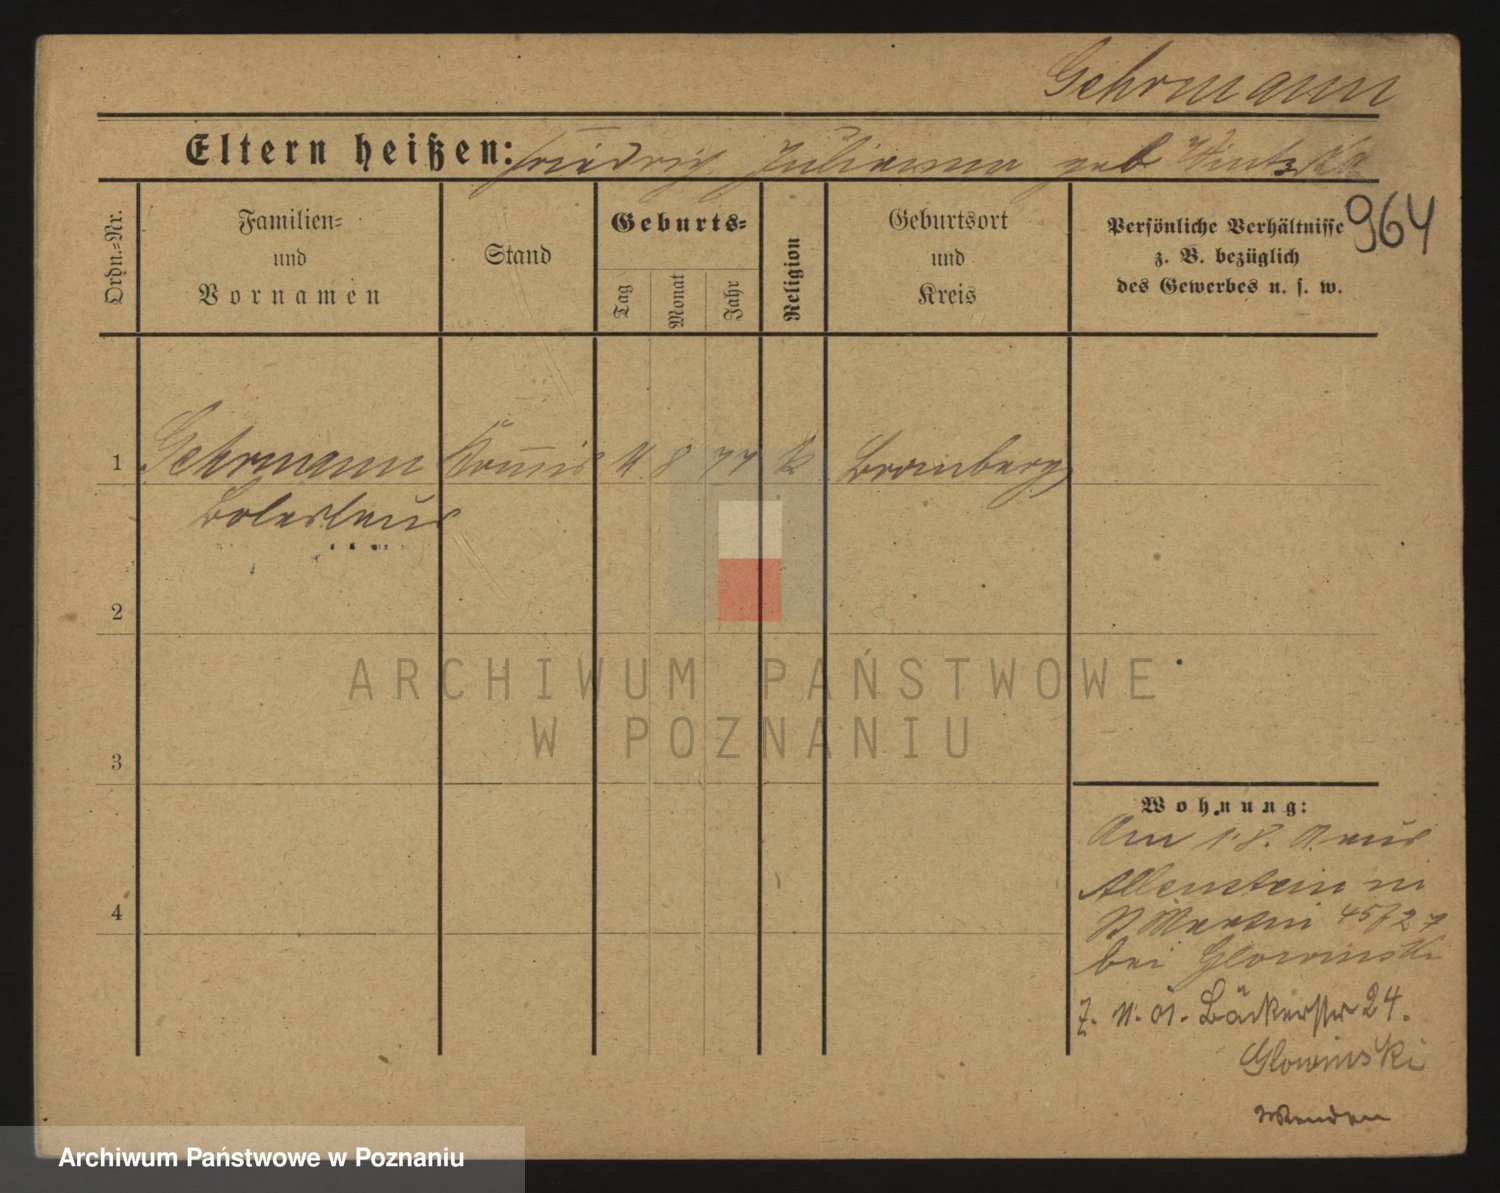 Gehrmann
Eltern heißen: Friedrig Julianna geb
964
Ordn.=Nr.
Familien=
und
Vornamen
Stand
Geburts=
Tag
Monat
Jahr
Religion
Geburtsort
und
Kreis
Persönliche Verhältnisse
z. B. bezüglich
des Gewerbes u. s. w.
1 Gehrmann Kommis 11 8 77 k Bromberg
Boleslaus
2
3
4
ARCHIWUM PAŃSTWOWE
W POZNANIU
Wohnung:
Am 1.8. aus
Allenstein in
St Martin
bei Glowinski
Bäckerstr 24.
Glowinski
Wenden
Archiwum Państwowe w Poznaniu